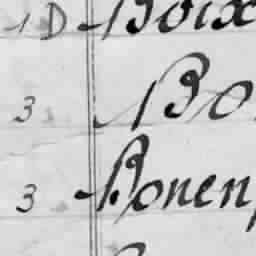 1 D Boix
3 Bo
3 Bonen